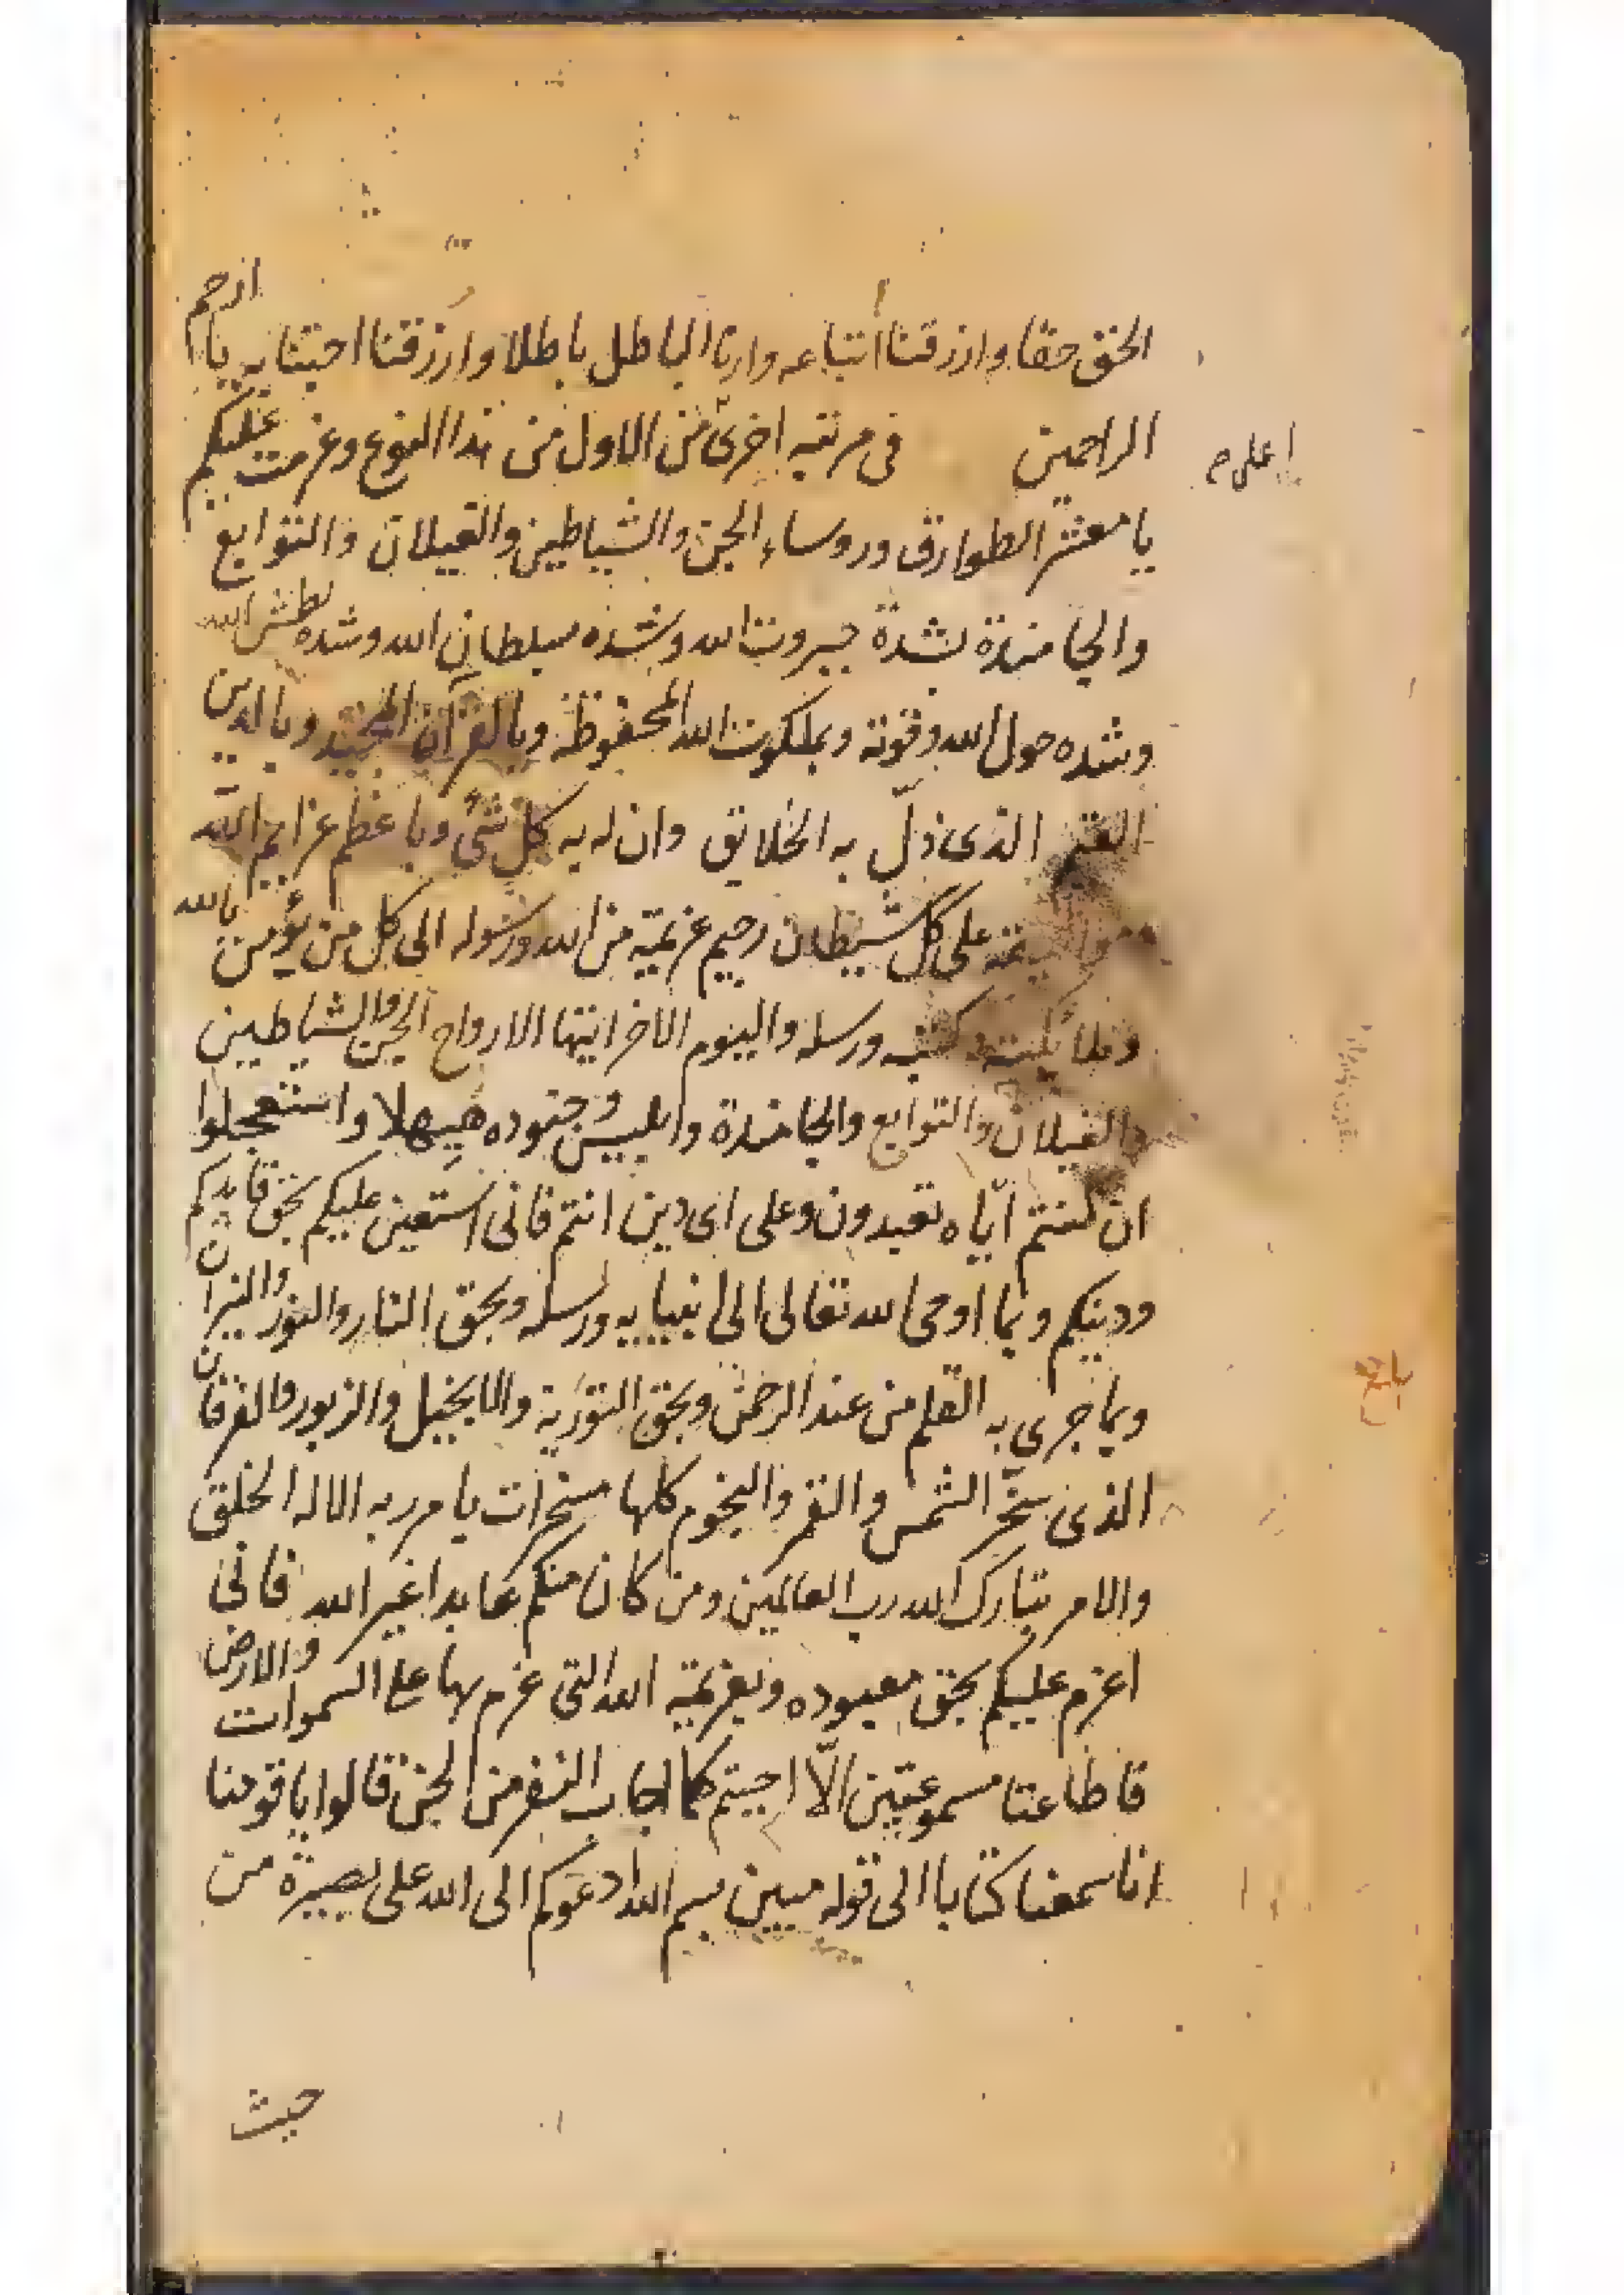 الحق حقا وارزقنا اتباعه وارنا الباطل باطلا وارزقنا اجتنابه يا ارحم
الراحمين في مرتبه اخرى من الاول من هذا النوع وعزمت عليكم
اعلى م
يا معشر الطوارق وروساء الجن والشياطين والغيلان والتوابع
والجامندة بشدة جبروت الله وشده سلطان الله وشده بطش الله
وشده حول الله وقوته وبملكوت الله المحفوظة وبالقرآن المجيد وبالدين
القيم الذى ذلّ به الخلايق وان له به كل شئ وباعظم عزايم الله
على كل شيطان رجيم عزيمة من الله ورسوله الى كل من يؤمن بالله
وملائكته وكتبه ورسله واليوم الاخر ايتها الارواح الجن والشياطين
والغيلان والتوابع والجامندة وابليس وجنوده هيهلا واستعجلوا
ان كنتم ايّاه تعبدون وعلى اى دين انتم فانى استعين عليكم بحق قايدكم
ودينكم وبما اوحى الله تعالى الى انبيايه ورسله وبحق النار والنور والنيران
وبما جرى به القلم من عند الرحمن وبحق التورية والانجيل والزبور والفرقان
بلغ
الذى سخّر الشمس والقمر والنجوم كلها مسخرات بامر ربه الا له الخلق
والامر تبارك الله رب العالمين ومن كان منكم عابدا غير الله فانى
اعزم عليكم بحق معبوده وبعزيمة الله التى عزم بها على السموات والارض
فاطاعتا مسموعتين الّا اجبتم كما اجاب النفر من الجن قالوا يا قومنا
انا سمعنا كتابا الى قوله مبين بسم الله ادعوكم الى الله على بصيرة من
حيث